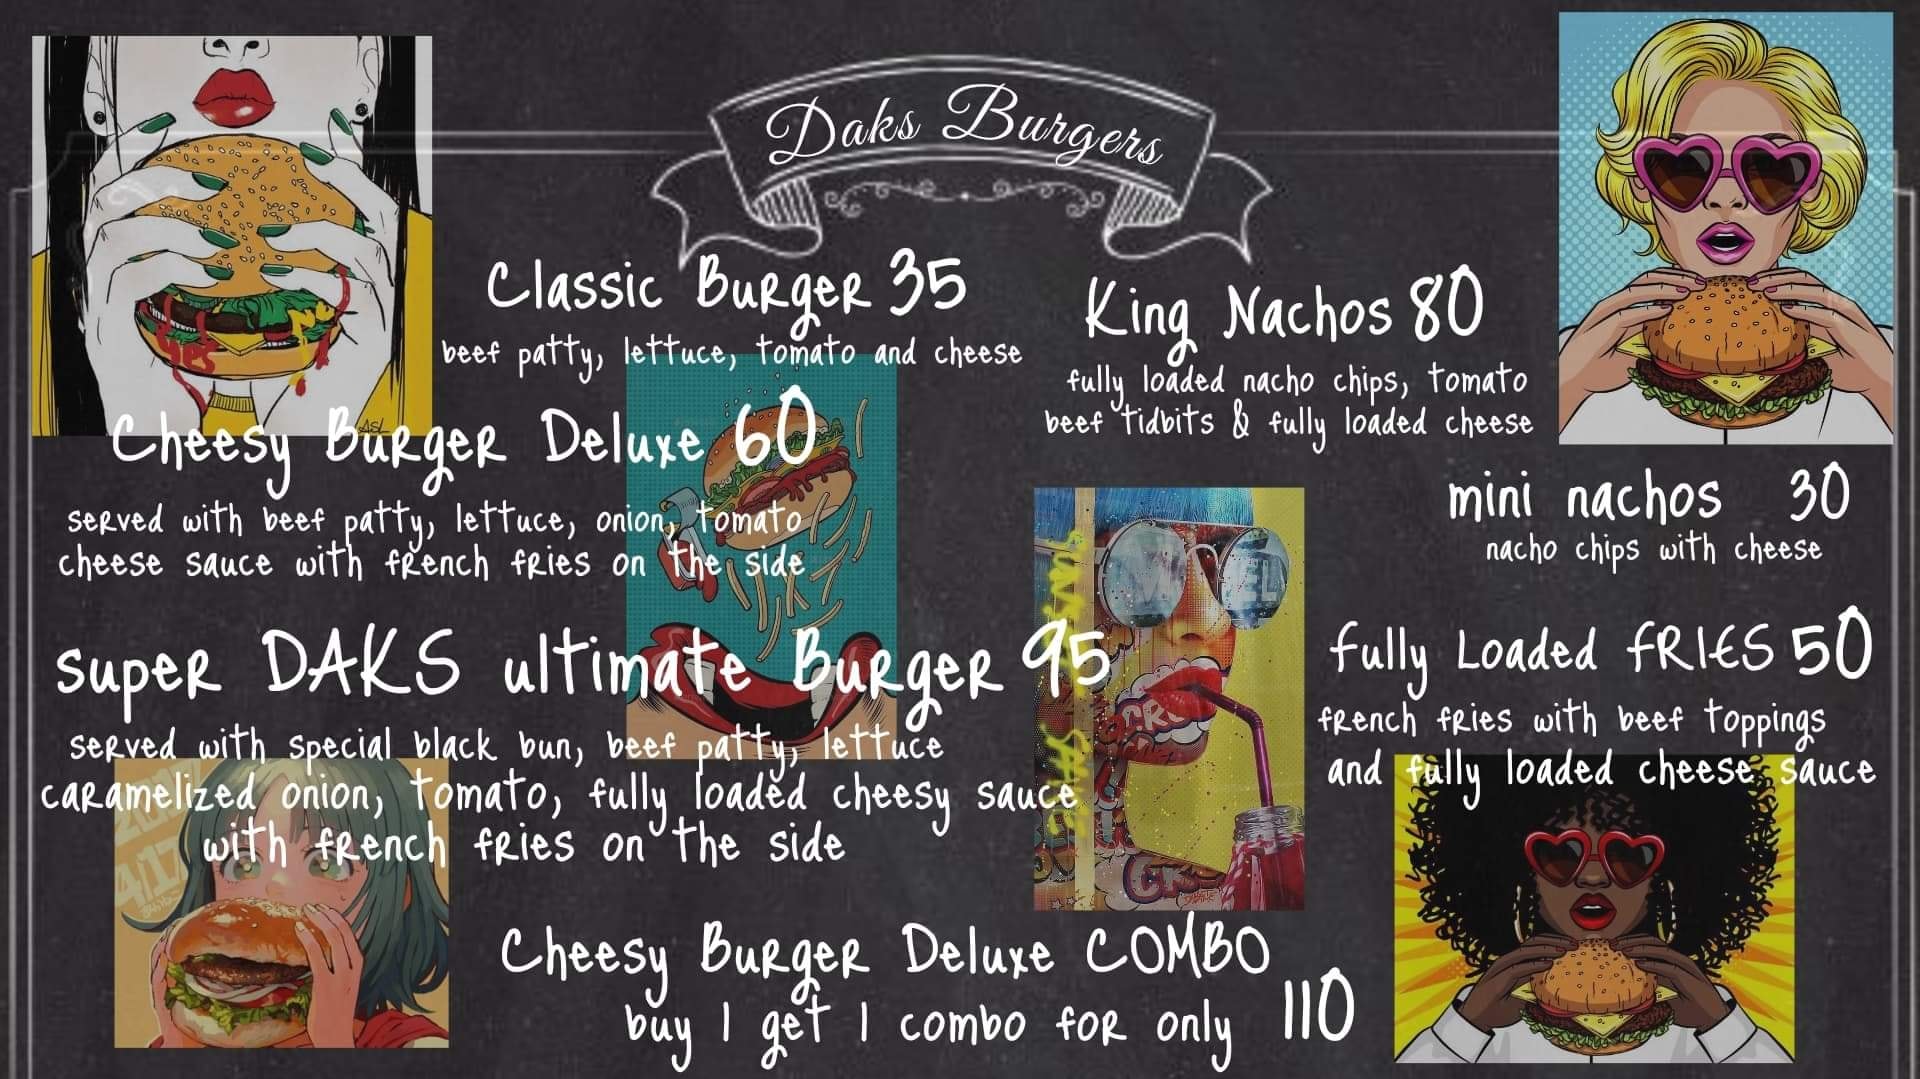 Daks Burgers
Classic Burger 35
beef patty, lettuce, tomato and cheese
Cheesy Burger Deluxe 60
served with beef patty, lettuce, onion, tomato
cheese sauce with french fries on the side
super DAKS ultimate Burger 95
served with special black bun, beef patty, lettuce
caramelized onion, tomato, fully loaded cheesy sauce
with french fries on the side
Cheesy Burger Deluxe COMBO
buy 1 get 1 combo for only 110
King Nachos 80
fully loaded nacho chips, tomato
beef tidbits & fully loaded cheese
mini nachos 30
nacho chips with cheese
fully Loaded FRIES 50
french fries with beef toppings
and fully loaded cheese sauce
ASL